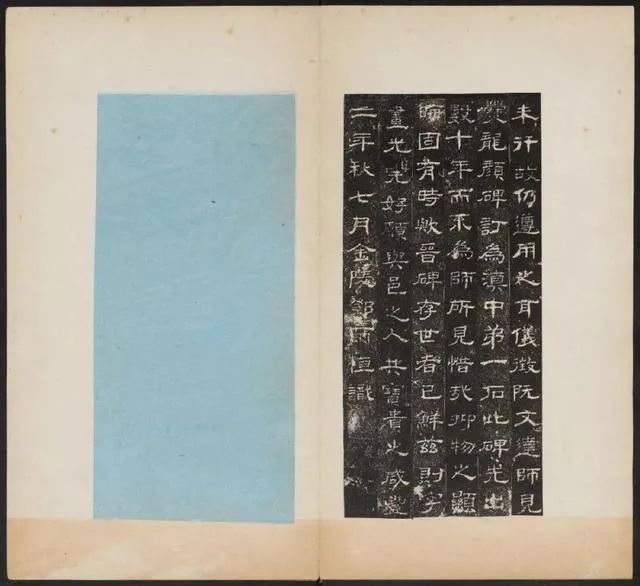 未行故仍遵用之耳儀徵阮文達師見
爨龍顏碑訂為滇中弟一石此碑先出
數十年而不為師所見惜哉抑物之顯
晦固有時歟晉碑存世者已鮮茲則字
畫尤完好願與邑之人共寶貴之咸豐
二年秋七月金陵鄧爾恒識